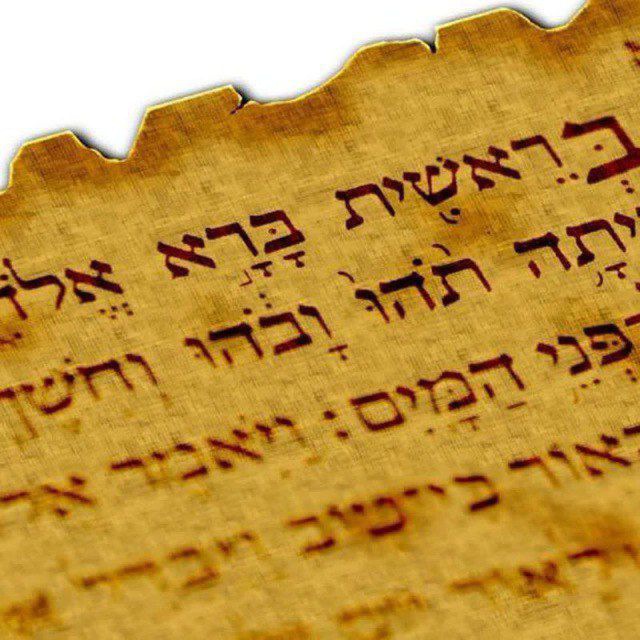 בְּרֵאשִׁית בָּרָא אֱלֹ
יְתָה תֹהוּ וָבֹהוּ וְחֹשֶׁךְ
פְּנֵי הַמָּיִם: וַיֹּאמֶר
אור כי טוב ויבדל